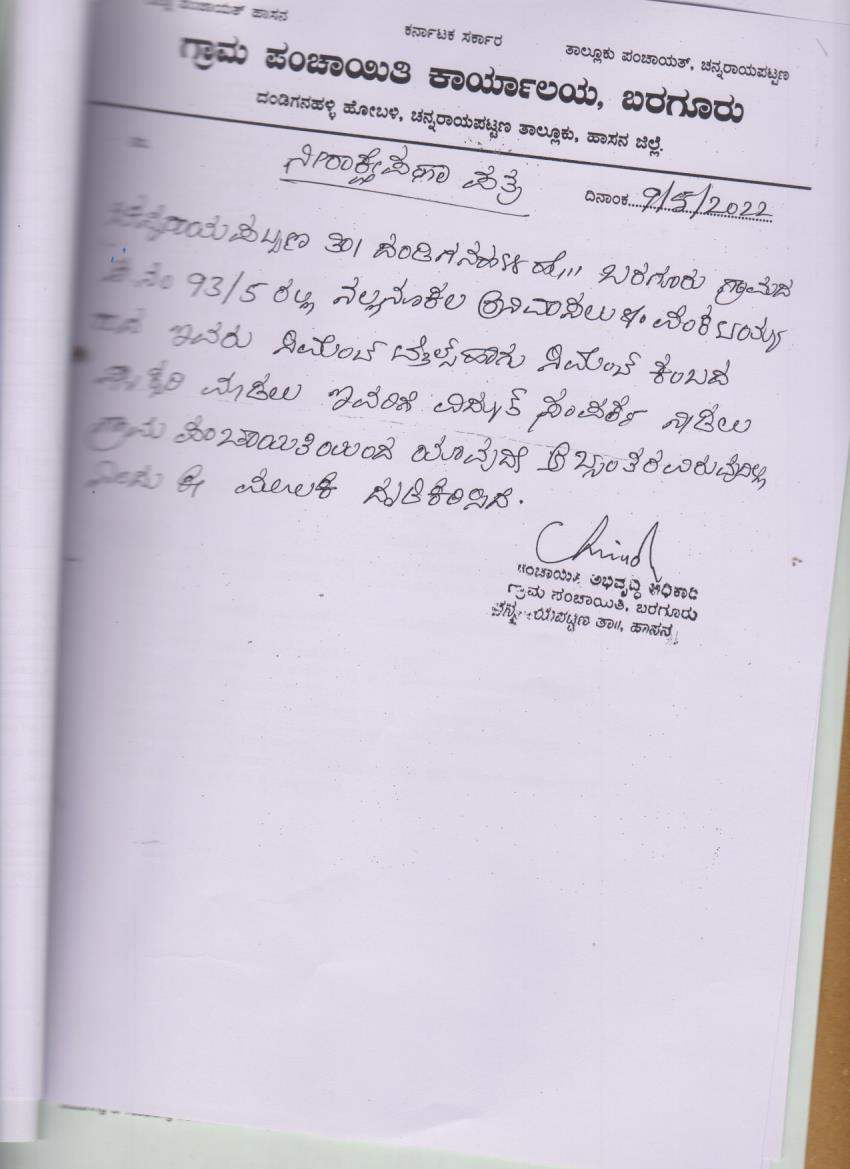 ಪಂಚಾಯತ್ ಹಾಸನ
ಕರ್ನಾಟಕ ಸರ್ಕಾರ
ತಾಲ್ಲೂಕು ಪಂಚಾಯತ್, ಚನ್ನರಾಯಪಟ್ಟಣ
ಗ್ರಾಮ ಪಂಚಾಯಿತಿ ಕಾರ್ಯಾಲಯ, ಬರಗೂರು
ದಂಡಿಗನಹಳ್ಳಿ ಹೋಬಳಿ, ಚನ್ನರಾಯಪಟ್ಟಣ ತಾಲ್ಲೂಕು, ಹಾಸನ ಜಿಲ್ಲೆ.
ನೀರಾಕ್ಷೇಪಣಾ ಪತ್ರ
ದಿನಾಂಕ 9/5/2022
ತಾ। ದಂಡಿಗನಹಳ್ಳಿ ಹೋ,, ಬರಗೂರು ಗ್ರಾಮದ
ನಂ 93/5 ರಲ್ಲಿ
ಇವರು ಸಿಮೆಂಟ್ ಹಾಗು ಸಿಮೆಂಟ್ ಕಂಬದ
ಮಾಡಲು ಇವರಿಗೆ ವಿದ್ಯುತ್ ಸಂಪರ್ಕ ನೀಡಲು
ಗ್ರಾಮ ಪಂಚಾಯಿತಿಯಿಂದ ಯಾವುದೇ ಅಭ್ಯಂತರವಿರುವುದಿಲ್ಲ
ಈ ಮೂಲಕ ದೃಢಿಕರಿಸಿದೆ.
ಪಂಚಾಯಿತಿ ಅಭಿವೃದ್ಧಿ ಅಧಿಕಾರಿ
ಗ್ರಾಮ ಪಂಚಾಯಿತಿ, ಬರಗೂರು
ಚನ್ನರಾಯಪಟ್ಟಣ ತಾ॥, ಹಾಸನ